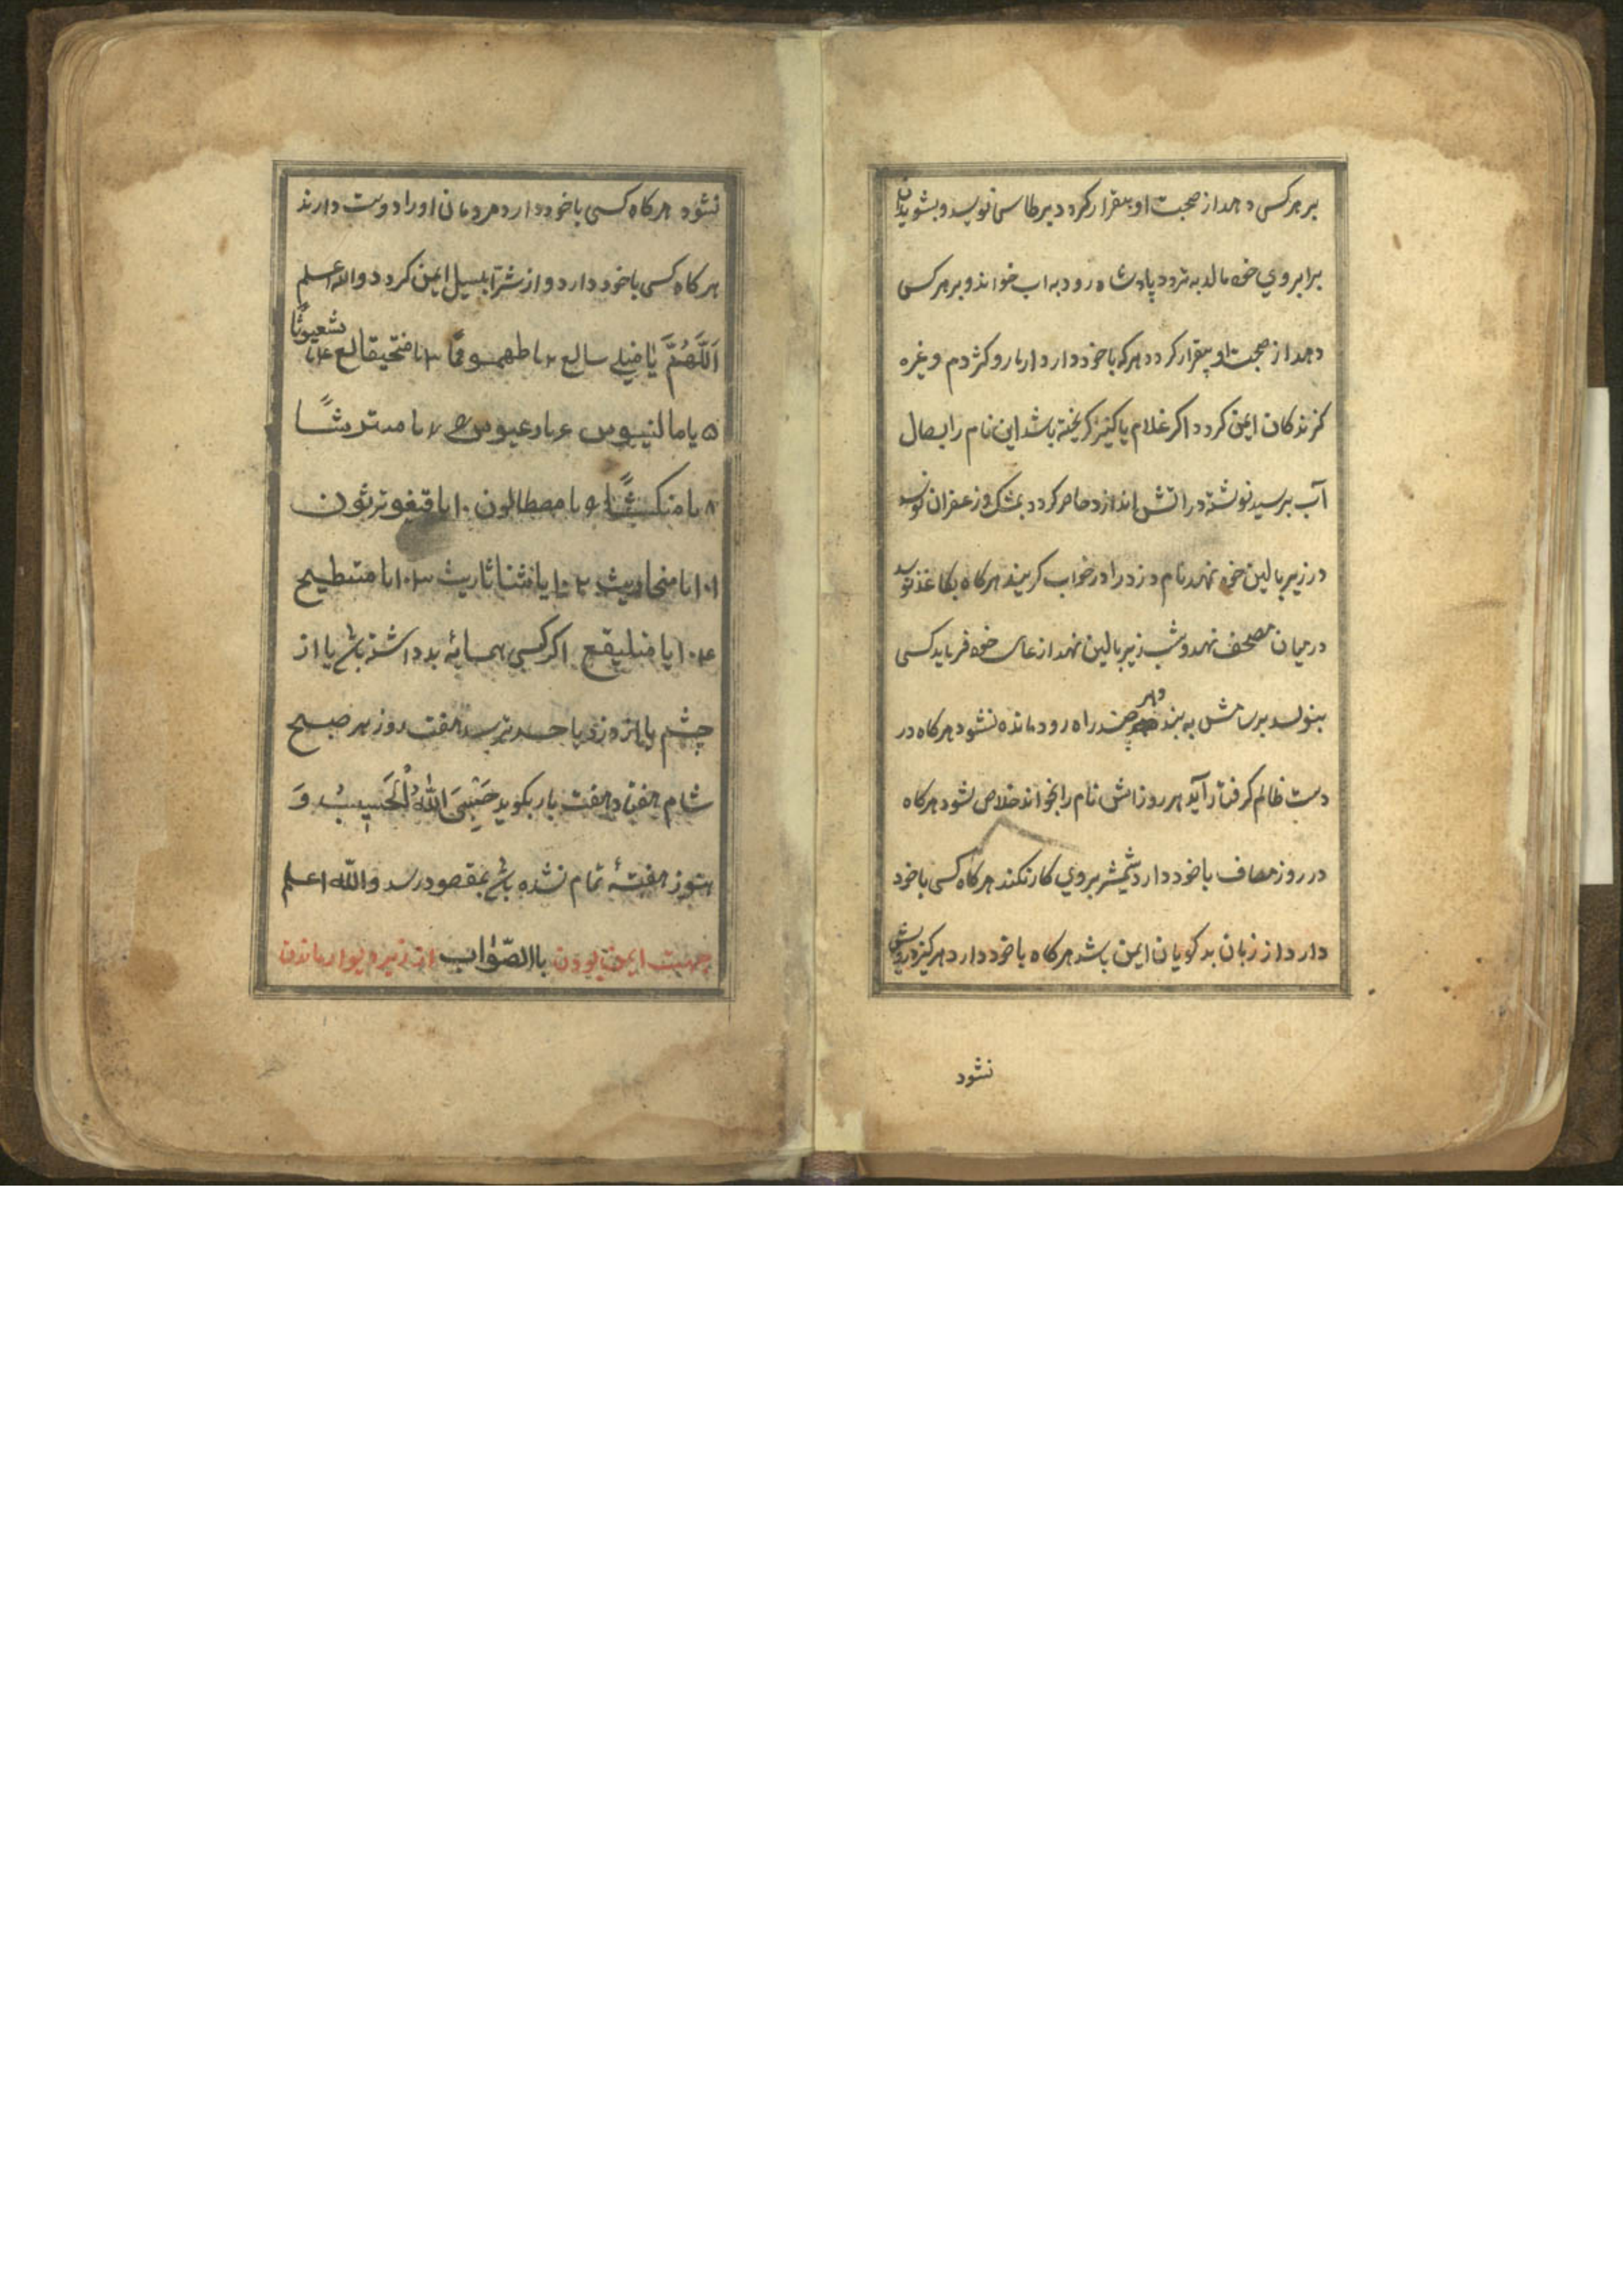 بر هر کسی دهد از صحبت او بیقرار کردد بر طاسی نویسد و بشوید
برابروي خود مالد به نزد پادشاه رود به اب خواند و بر هر کسی
دهد از صحبت او بیقرار کردد هر که با خود دارد از مار و کژدم و غیره
کزندکان ایمن کردد اکر غلام یا کنیز کریخته باشد این نام را بسفال
آب نرسیده نوشته در اتش اندازد حاضر کردد بمشک و زعفران نویسد
در زیر بالین خود نهد نام دزد را در خواب کر بیند هر کاه بکاغذ نویسد
در میان مصحف نهد و شب زیر بالین نهد از غایب خود فر یابد کسی
بنویسد بر نامش به بندد و هر چند راه رود مانده نشود هر کاه در
دست ظالم کرفتار آید هر روز امش نام را بخواند خلاص شود هر کاه
در روز مصاف با خود دارد شمشیر بروي کار نکند هر کاه کسی با خود
دارد از زبان بد کویان ایمن باشد هر کاه با خود دارد هر کیز درویش
نشود
نشود هر کاه کسی با خود دارد مردمان او را دوست دارند
هر کاه کسی با خود دارد و از شر ابلیس ایمن کردد والله اعلم
اَللّٰهُمَّ یٰا منیلے سالع ۲ یا طهموفا ۳ یا منحیقالع ۴ یا شعیوثًا
۵ یا مالنیوس ۶ یا رعیوس ۷ یا مترشًا
۸ یا منکثًا ۹ یا مصطالون ۱۰ یا قیغوترثون
۱۰۱ یا منحاریث ۱۰۲ یا یا نثنا ثاریث ۱۰۳ یا متطیح
۱۰۴ یا منلیقع اکر کسی همسایهٔ بد داشته باشد یا از
چشم یا از دزد یا حسد ترسد هفت روز هر صبح
شام هفتاد هفت بار بکوید حَسْبِیَ اللّٰهُ الْحَسِیبُ وَ
هنوز هفتهٔ تمام نشده باشد بمقصود رسد والله اعلم
جهت ایمن بودن باالصّواب از زیر دیوار ماندن